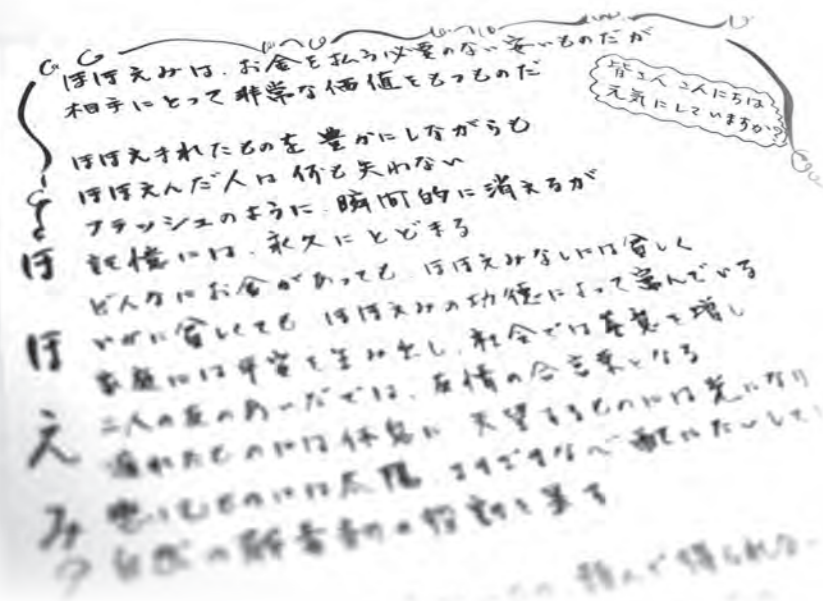 ほほえみは、お金を払う必要のない安いものだが
相手にとって非常な価値をもつものだ
皆さんこんにちは
元気にしていますか?
ほほえまれたものを豊かにしながらも
ほほえんだ人は何も失わない
フラッシュのように、瞬間的に消えるが
記憶には、永久にとどまる
どんなにお金があっても、ほほえみなしには貧しく
いかに貧しくても ほほえみの功徳によって富んでいる
家庭には平安を生み出し、社会では善意を増し
二人の友のあいだでは、友情の合言葉となる
疲れたものには休息に 失望するものには光になり
悲しむものには太陽 さまざまな心配にたいして
自然の解毒剤の役割を果す
ほほえみ